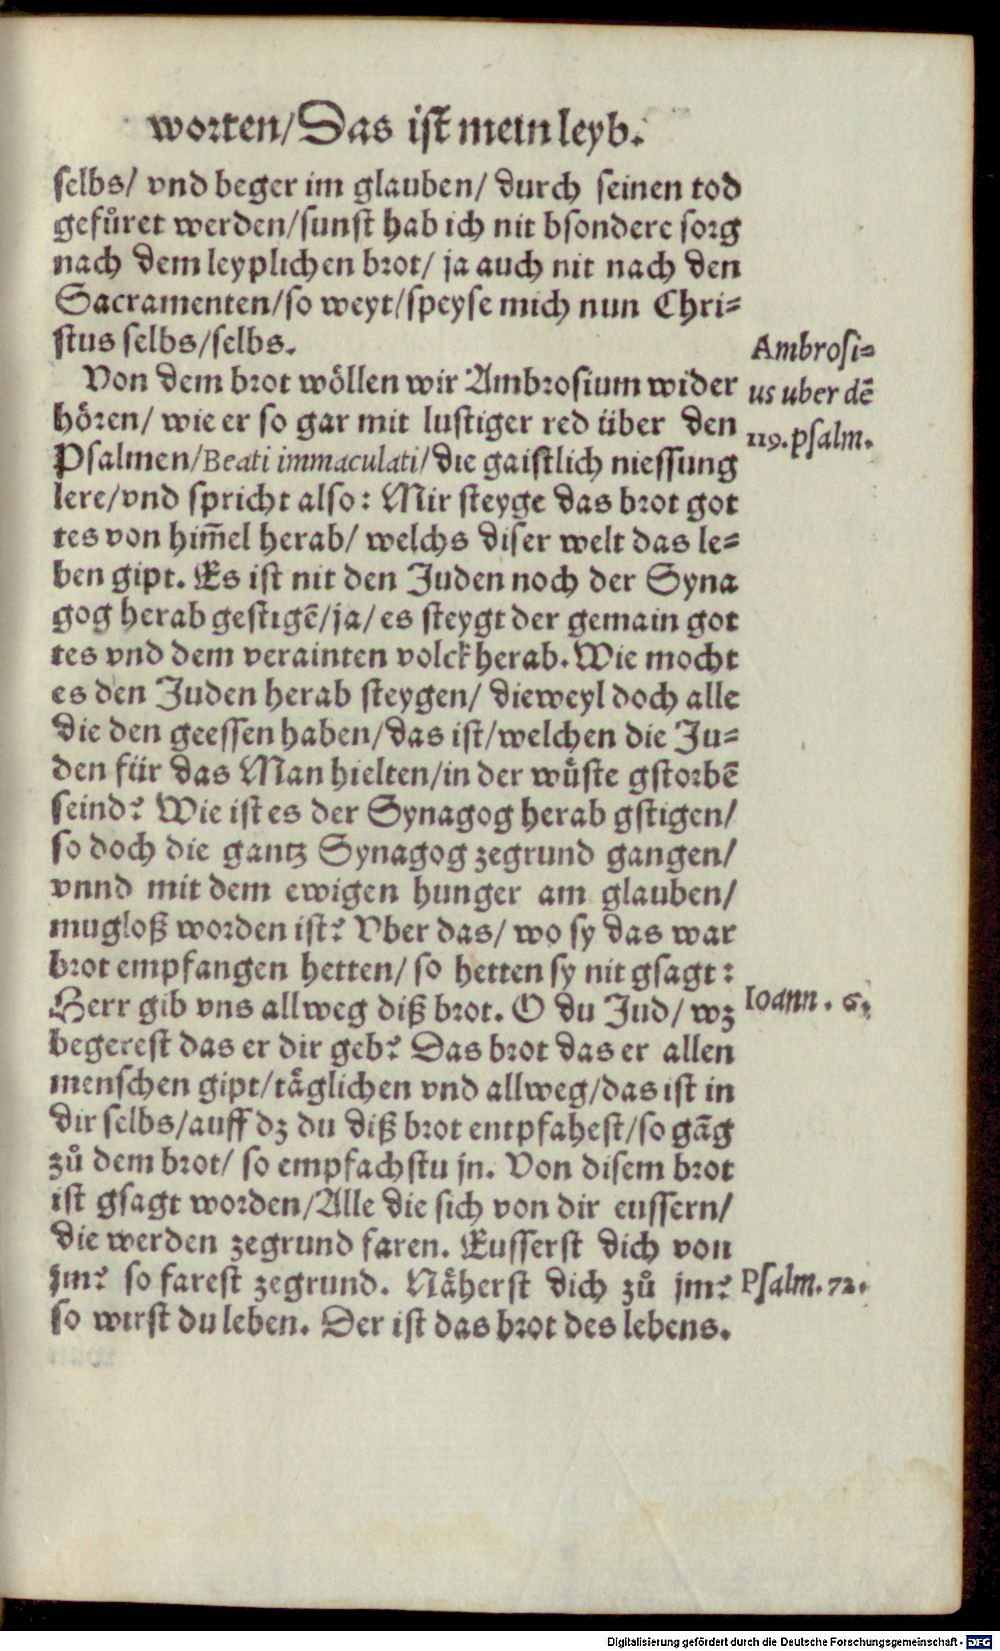 worten/Das ist mein leyb.
selbs/ vnd beger im glauben/ durch seinen tod
gefůret werden/sunst hab ich nit bsondere sorg
nach dem leyplichen brot/ ja auch nit nach den
Sacramenten/so weyt/speyse mich nun Chri=
stus selbs/selbs.
Von dem brot wöllen wir Ambrosium wider
hören/ wie er so gar mit lustiger red über den
Psalmen/Beati immaculati/die gaistlich niessung
lere/vnd spricht also: Mir steyge das brot got
tes von him̄el herab/ welchs diser welt das le=
ben gipt. Es ist nit den Juden noch der Syna
gog herab gestigē/ja/ es steygt der gemain got
tes vnd dem verainten volck herab. Wie mocht
es den Juden herab steygen/ dieweyl doch alle
die den geessen haben/das ist/welchen die Ju=
den für das Man hielten/in der wůste gstorbē
seind? Wie ist es der Synagog herab gstigen/
so doch die gantz Synagog zegrund gangen/
vnnd mit dem ewigen hunger am glauben/
mugloß worden ist? Vber das/ wo sy das war
brot empfangen hetten/ so hetten sy nit gsagt:
Herr gib vns allweg diß brot. O du Jud/ wz
begerest das er dir geb? Das brot das er allen
menschen gipt/täglichen vnd allweg/das ist in
dir selbs/auff dz du diß brot entpfahest/so gāg
zů dem brot/ so empfachstu jn. Von disem brot
ist gsagt worden/Alle die sich von dir eussern/
die werden zegrund faren. Eusserst dich von
jm? so farest zegrund. Näherst dich zů jm?
so wirst du leben. Der ist das brot des lebens.
Ambrosi=
us uber dē
119. psalm.
Ioann. 6.
Psalm. 72.
Digitalisierung gefördert durch die Deutsche Forschungsgemeinschaft - DFG